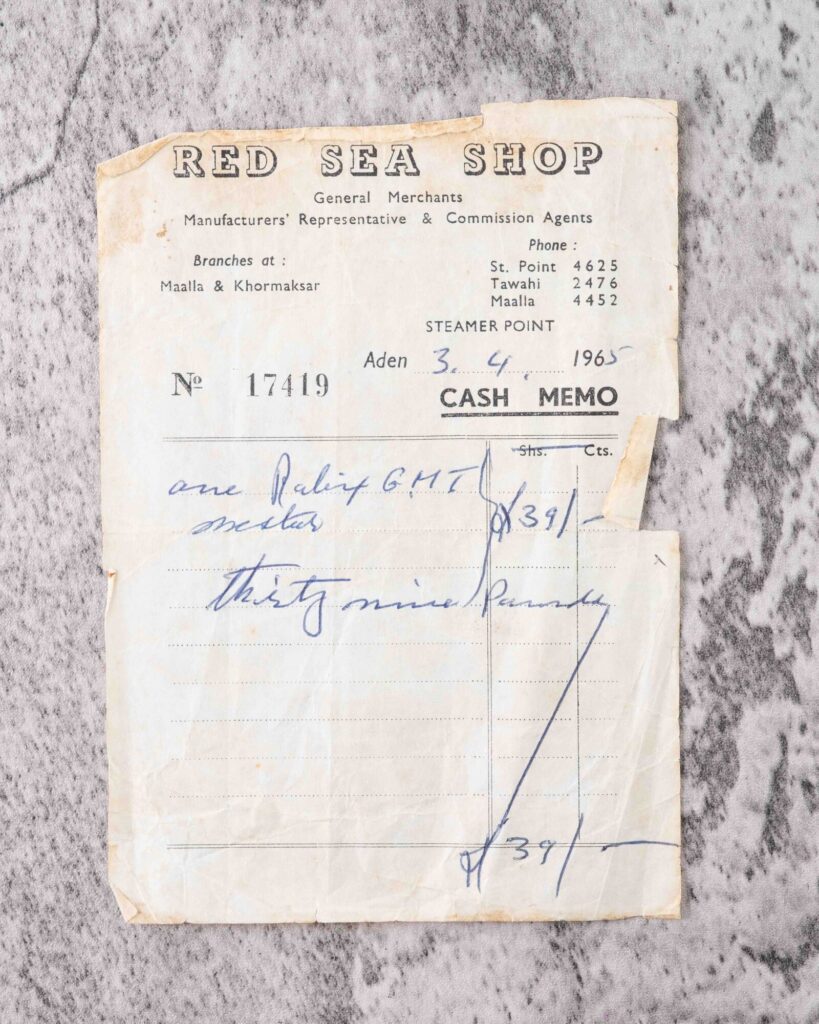 RED SEA SHOP
General Merchants
Manufacturers' Representative & Commission Agents
Branches at :
Maalla & Khormaksar
Phone :
St. Point 4625
Tawahi 2476
Maalla 4452
STEAMER POINT
Aden 3. 4. 1965
Nº 17419
CASH MEMO
Shs. Cts.
one GMT
£39/-
thirty nine Pounds
£39/-